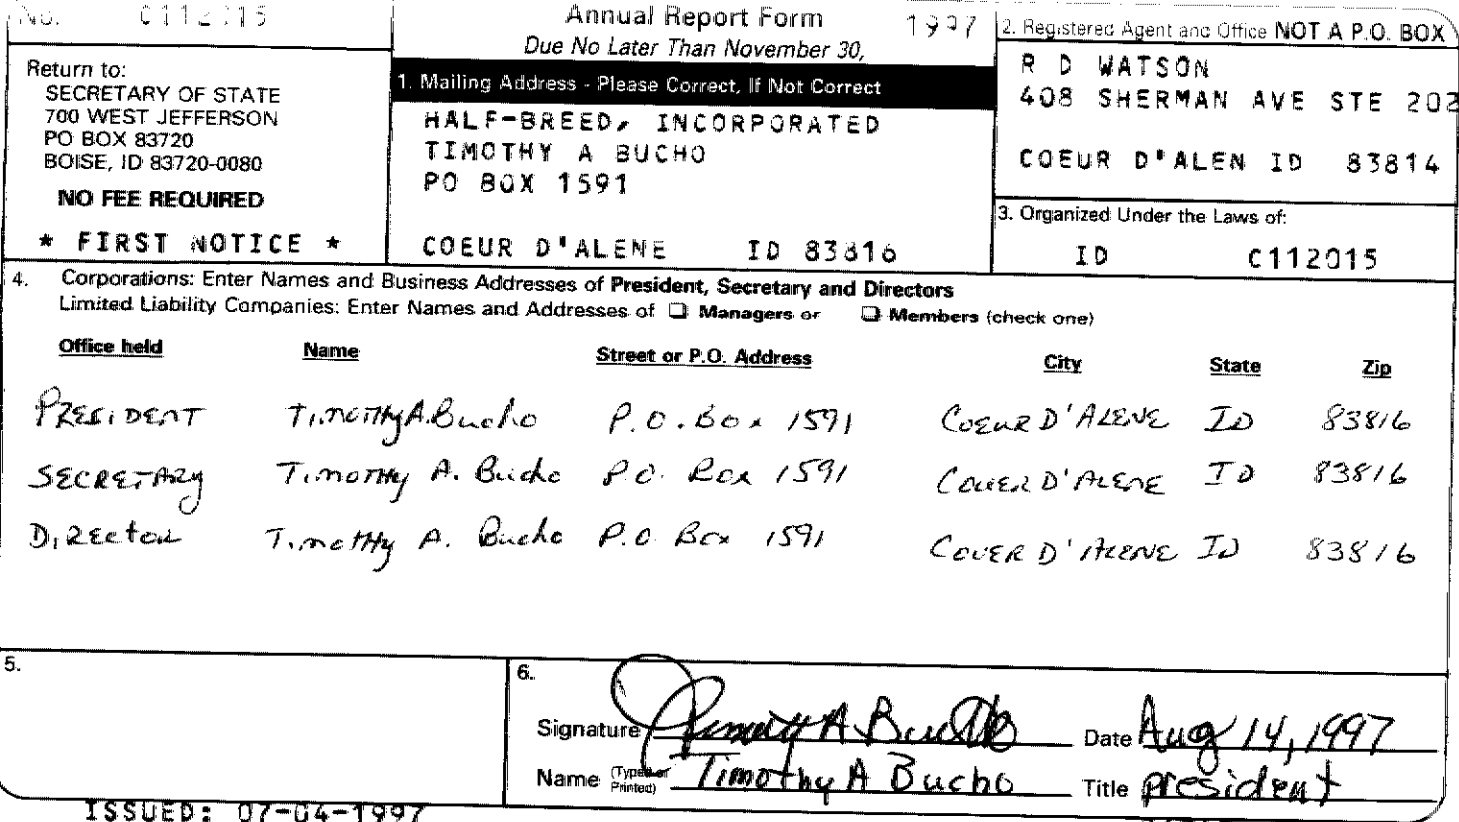 NO. C112015
Annual Report Form 1997
Due No Later Than November 30,
Return to:
SECRETARY OF STATE
700 WEST JEFFERSON
PO BOX 83720
BOISE, ID 83720-0080
NO FEE REQUIRED
* FIRST NOTICE *
1. Mailing Address - Please Correct, If Not Correct
HALF-BREED, INCORPORATED
TIMOTHY A BUCHO
PO BOX 1591
COEUR D'ALENE ID 83816
2. Registered Agent and Office NOT A P.O. BOX
R D WATSON
408 SHERMAN AVE STE 202
COEUR D'ALEN ID 83814
3. Organized Under the Laws of:
ID C112015
4. Corporations: Enter Names and Business Addresses of President, Secretary and Directors
Limited Liability Companies: Enter Names and Addresses of ❑ Managers or ❑ Members (check one)
Office held Name Street or P.O. Address City State Zip
PRESIDENT Timothy A. Bucho P.O. Box 1591 COEUR D'ALENE ID 83816
SECRETARY Timothy A. Bucho P.O. Box 1591 COUER D'ALENE ID 83816
DIRECTOR Timothy A. Bucho P.O. Box 1591 COUER D'ALENE ID 83816
5.
6.
Signature Timothy A Bucho Date Aug 14, 1997
Name (Typed or Printed) Timothy A Bucho Title president
ISSUED: 07-04-1997